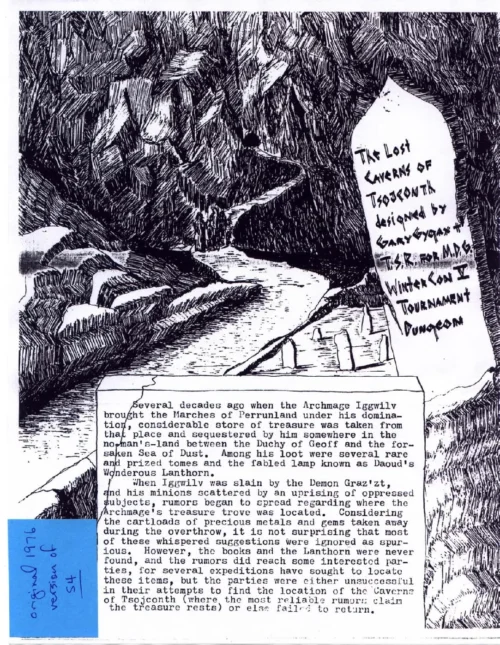 The Lost
Caverns of
Tsojconth
designed by
Gary Gygax +
T.S.R. for M.D.G.
WinterCon V
Tournament
Dungeon
Several decades ago when the Archmage Iggwilv
brought the Marches of Perrunland under his domina-
tion, considerable store of treasure was taken from
that place and sequestered by him somewhere in the
no-man's-land between the Duchy of Geoff and the for-
saken Sea of Dust. Among his loot were several rare
and prized tomes and the fabled lamp known as Daoud's
Wonderous Lanthorn.
When Iggwilv was slain by the Demon Graz'zt,
and his minions scattered by an uprising of oppressed
subjects, rumors began to spread regarding where the
Archmage's treasure trove was located. Considering
the cartloads of precious metals and gems taken away
during the overthrow, it is not surprising that most
of these whispered suggestions were ignored as spur-
ious. However, the books and the Lanthorn were never
found, and the rumors did reach some interested par-
ties, for several expeditions have sought to locate
these items, but the parties were either unsuccessful
in their attempts to find the location of the Caverns
of Tsojconth (where the most reliable rumors claim
the treasure rests) or else failed to return.
original 1976
version of
S4